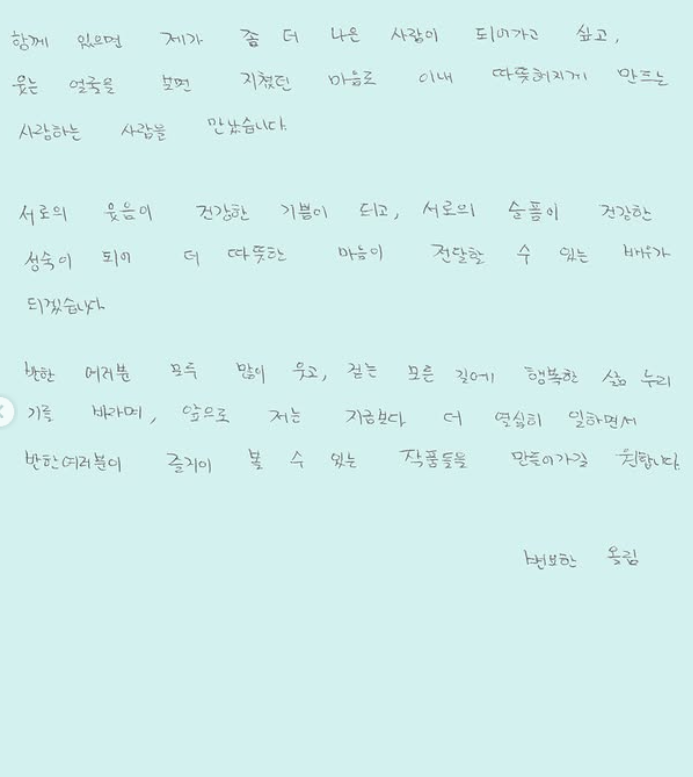 함께 있으면 제가 좀 더 나은 사람이 되어가고 싶고,
웃는 얼굴을 보면 지쳤던 마음도 이내 따뜻해지게 만드는
사랑하는 사람을 만났습니다.
서로의 웃음이 건강한 기쁨이 되고, 서로의 슬픔이 건강한
성숙이 되어 더 따뜻한 마음이 전달할 수 있는 배우가
되겠습니다
반한 여러분 모두 많이 웃고, 걷는 모든 길에 행복한 삶 누리
기를 바라며, 앞으로 저는 지금보다 더 열심히 일하면서
반한여러분이 즐거이 볼 수 있는 작품들을 만들어가길 원합니다.
변요한 올림